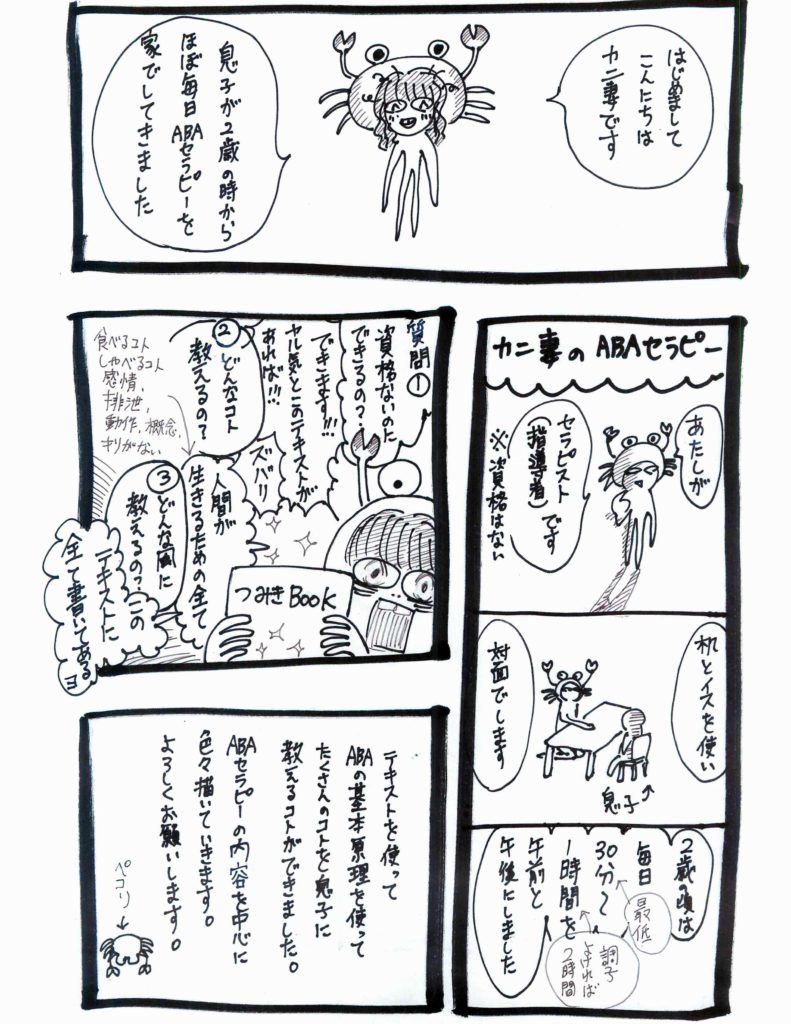 はじめまして
こんにちは
カニ妻です
息子が2歳の時から
ほぼ毎日ABAセラピーを
家でしてきました
カニ妻のABAセラピー
あたしが
セラピスト
(指導者)です
※資格はない
机とイスを使い
対面でします
息子
2歳の頃は
毎日
30分〜
1時間を
午前と
午後にしました
最低
調子
よければ
2時間
質問①
資格ないのに
できるの?
できます!!!
ヤル気とこのテキストが
あれば!!!
②どんなコト
教えるの?
ズバリ
人間が
生きるための全て
食べるコト
しゃべるコト
感情、
排泄、
動作、概念、
キリがない
③どんな風に
教えるの?
この
テキストに
全て書いてあるヨ
つみきBOOK
テキストを使って
ABAの基本原理を使って
たくさんのコトを息子に
教えるコトができました。
ABAセラピーの内容を中心に
色々描いていきます。
よろしくお願いします。
ペコリ